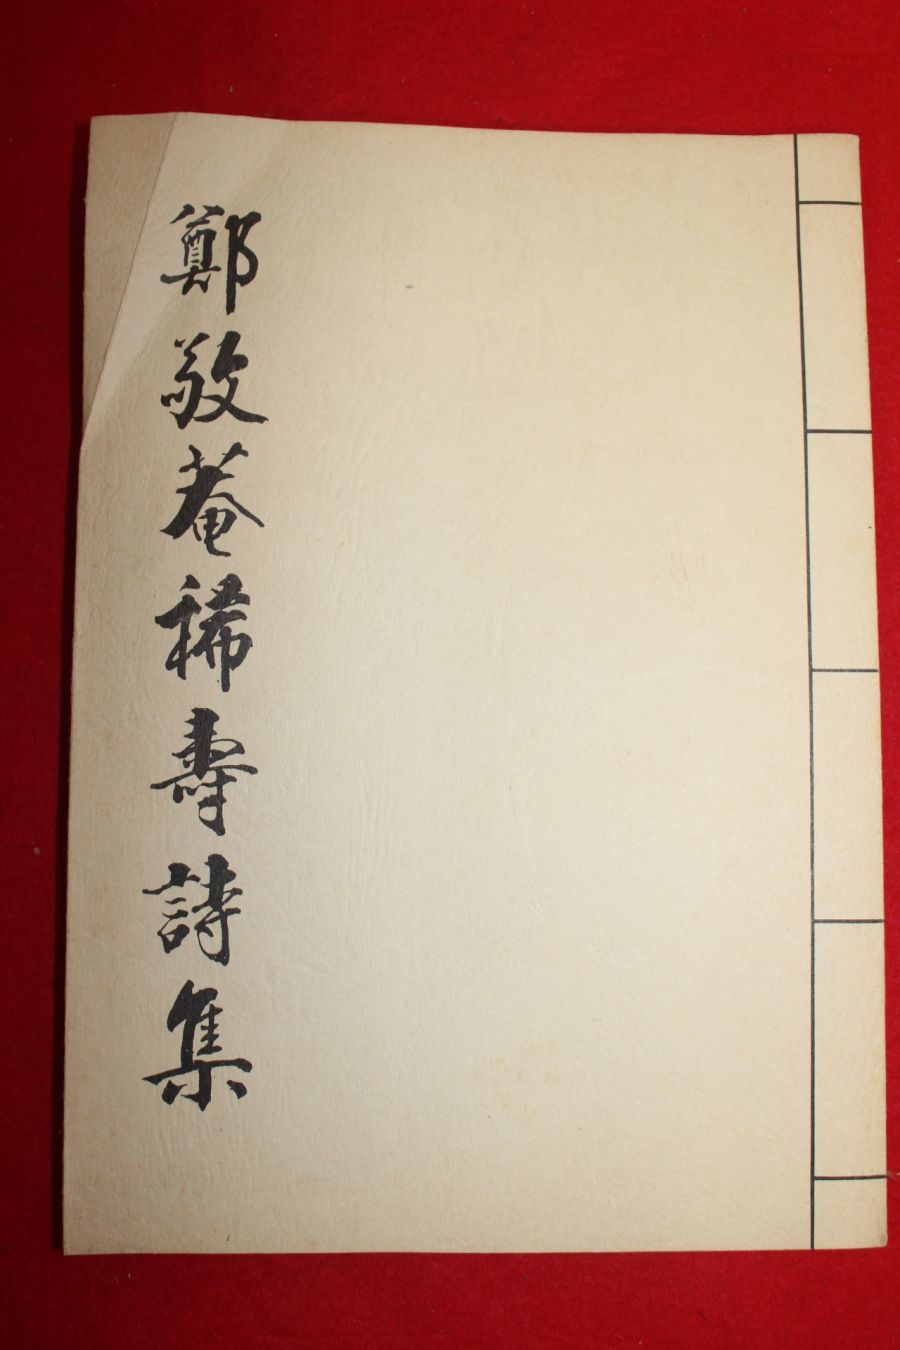 鄭敬菴稀壽詩集